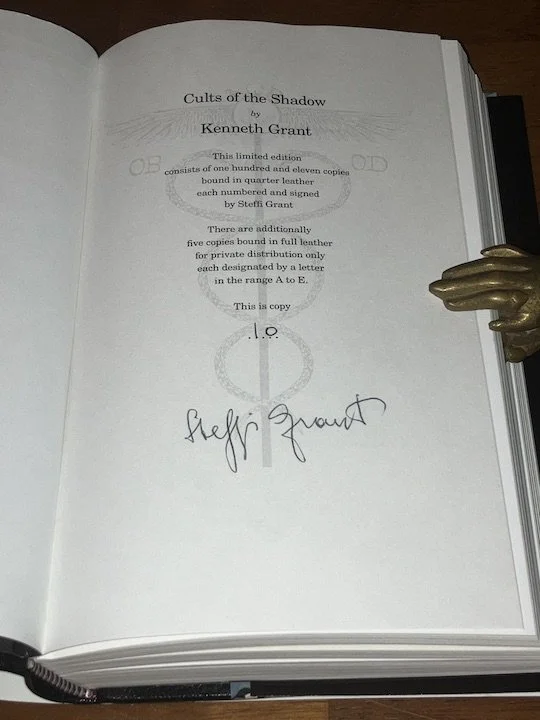 Cults of the Shadow
by
Kenneth Grant
This limited edition
consists of one hundred and eleven copies
bound in quarter leather
each numbered and signed
by Steffi Grant
There are additionally
five copies bound in full leather
for private distribution only
each designated by a letter
in the range A to E.
This is copy
10
Steffi Grant
OB OD